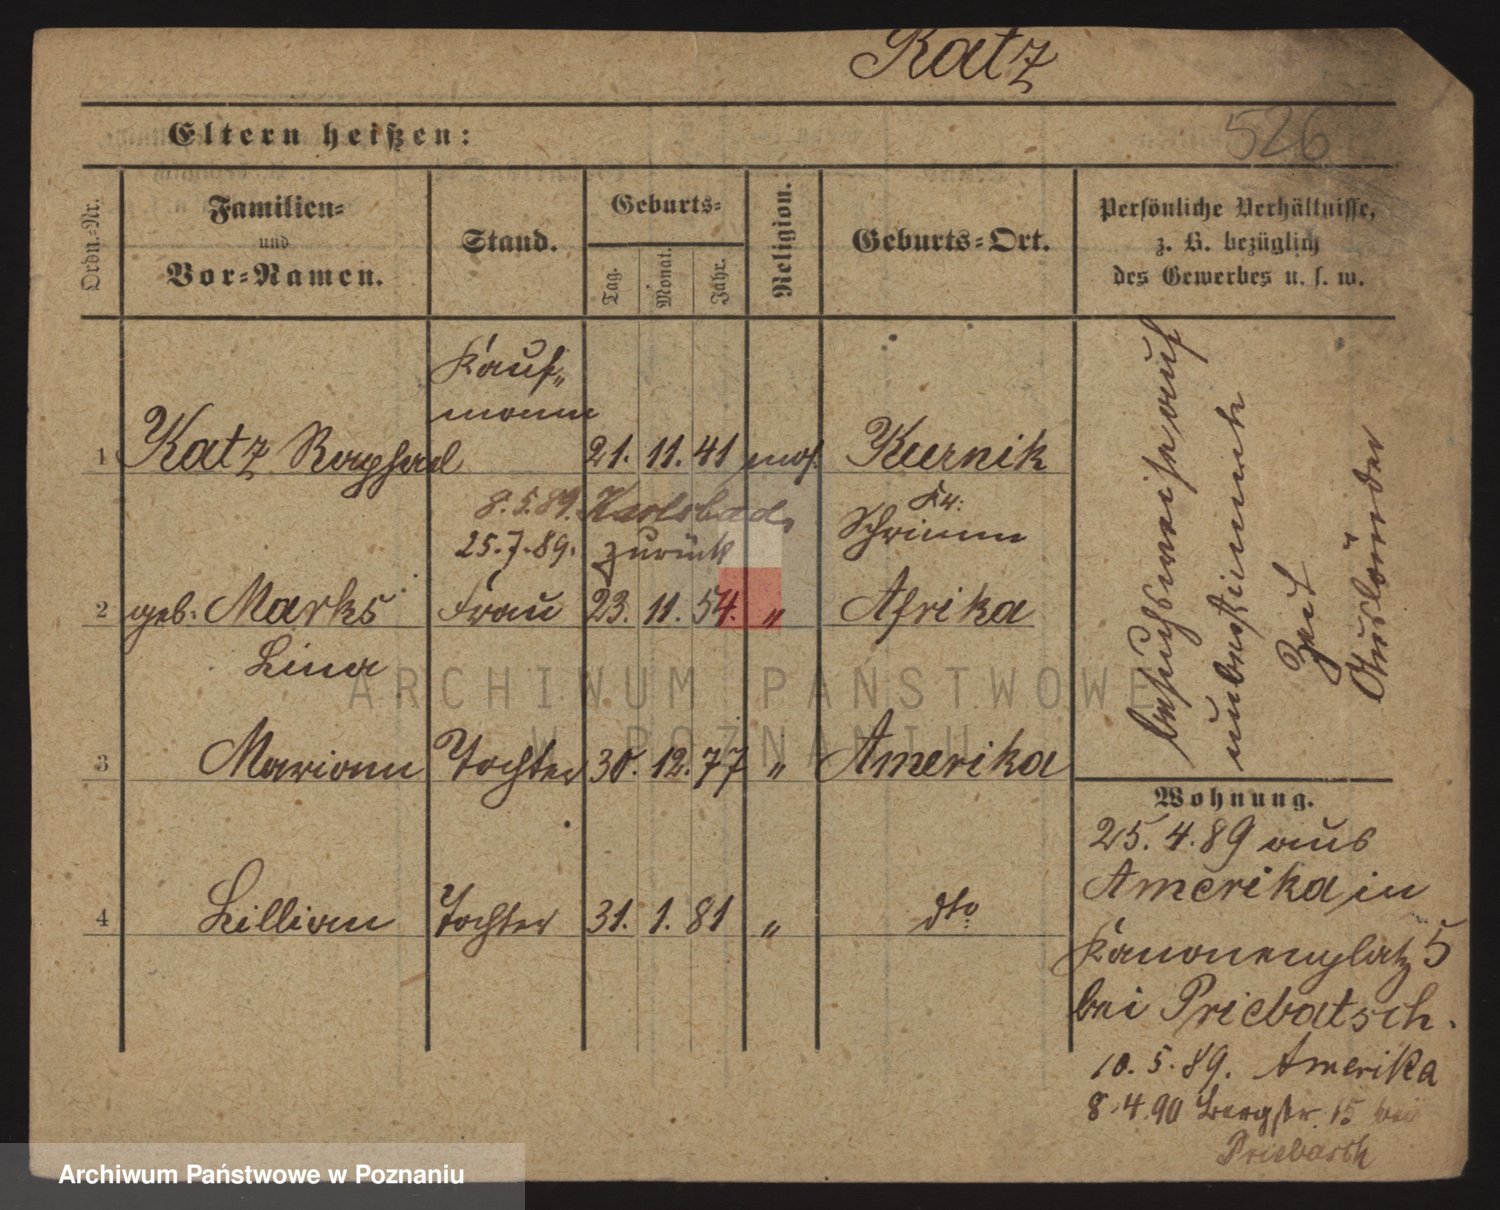 Katz
526
Eltern heißen:
Ordn.-Nr.
Familien-
und
Vor-Namen.
Stand.
Geburts-
Tag.
Monat.
Jahr.
Religion.
Geburts-Ort.
Persönliche Verhältnisse,
z. B. bezüglich
des Gewerbes u. s. w.
Kauf-
mann
1 Katz Raphael 21. 11. 41 mos. Kurnik
8.5.89. Karlsbad,
Kr:
Schrimm
25.7.89. zurück
2 geb. Marks Frau 23. 11. 54. " Afrika
Lina
3 Mariann Tochter 30. 12. 77 " Amerika
4 Lillian Tochter 31. 1. 81 " dto
besuchsweise auf
unbestimmte
Zeit
Ausländer
Wohnung.
25.4.89 aus
Amerika in
Kanonenplatz 5
bei Priebatsch.
10.5.89. Amerika
8.4.90 Bergstr. 15 bei
Priebatsch
ARCHIWUM PAŃSTWOWE
W POZNANIU
Archiwum Państwowe w Poznaniu